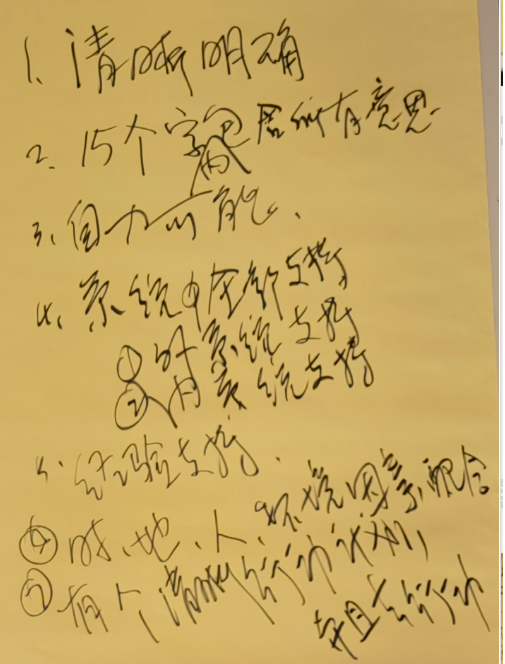 1. 清晰明确
2. 15个字内包含所有意思
3. 自力可能.
4. 系统中全部支持
① 外系统支持
② 内系统支持
5. 经验支持.
④ 时、地、人、环境因素配合
⑦ 有个清晰的行动计划,
并且去行动